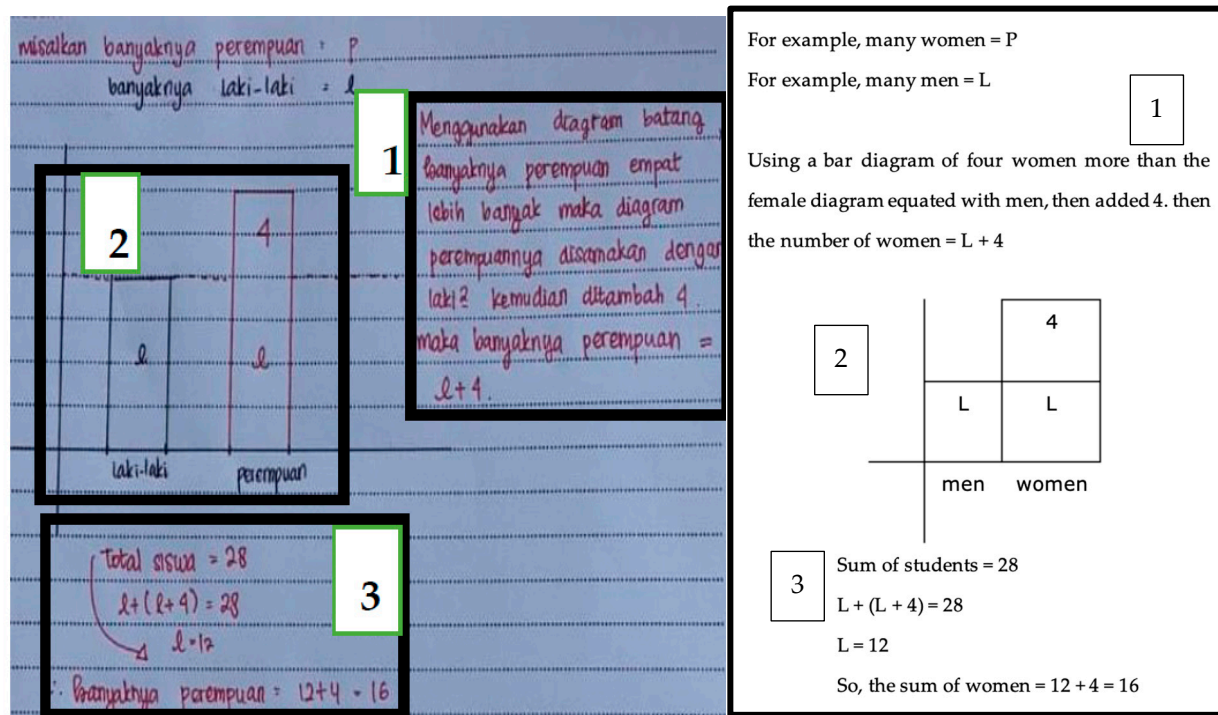 misalkan banyaknya perempuan = P
banyaknya laki-laki = l
1
Menggunakan diagram batang,
banyaknya perempuan empat
lebih banyak maka diagram
perempuannya disamakan dengan
laki2 kemudian ditambah 4.
maka banyaknya perempuan =
l+4.
2
4
l
l
laki-laki
perempuan
3
Total siswa = 28
l+(l+4) = 28
l=12
∴ Banyaknya perempuan = 12+4 = 16
For example, many women = P
For example, many men = L
1
Using a bar diagram of four women more than the
female diagram equated with men, then added 4. then
the number of women = L + 4
2
4
L L
men women
3
Sum of students = 28
L + (L + 4) = 28
L = 12
So, the sum of women = 12 + 4 = 16